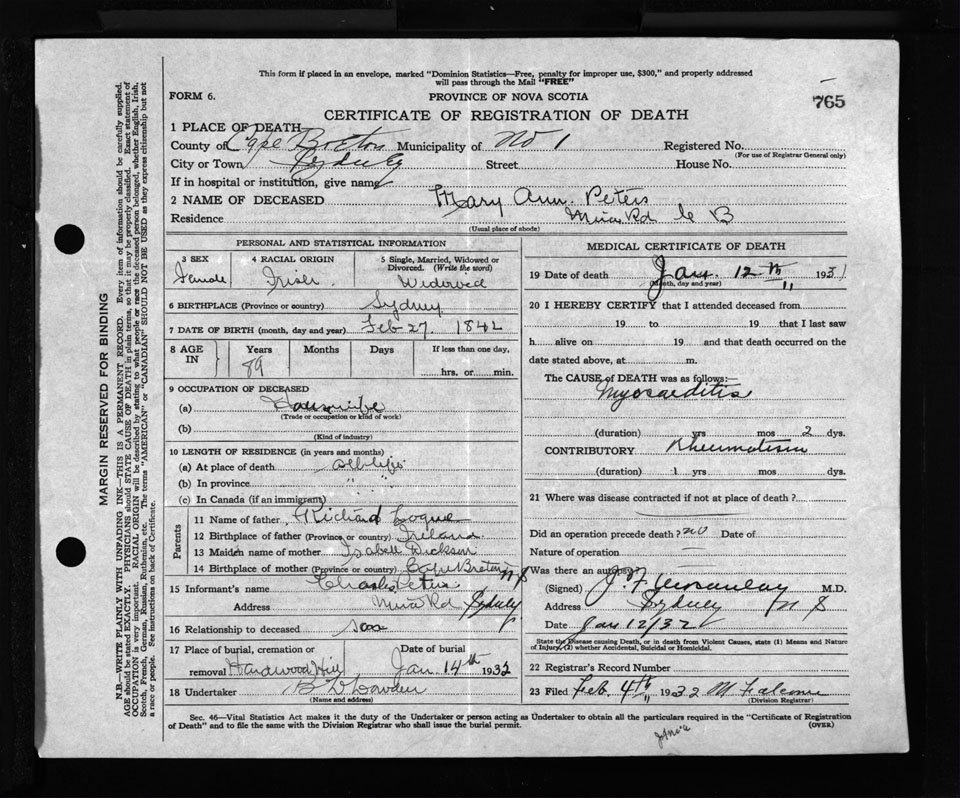 This form if placed in an envelope, marked "Dominion Statistics—Free, penalty for improper use, $300," and properly addressed
will pass through the Mail "FREE"
FORM 6.
PROVINCE OF NOVA SCOTIA
765
CERTIFICATE OF REGISTRATION OF DEATH
1 PLACE OF DEATH
County of Cape Breton Municipality of No 1 Registered No.
(For use of Registrar General only)
City or Town Sydney Street House No.
If in hospital or institution, give name
2 NAME OF DECEASED Mary Ann Peters
Residence Mira Rd C B
(Usual place of abode)
PERSONAL AND STATISTICAL INFORMATION
3 SEX Female
4 RACIAL ORIGIN Irish
5 Single, Married, Widowed or Divorced. (Write the word) Widowed
6 BIRTHPLACE (Province or country) Sydney
7 DATE OF BIRTH (month, day and year) Feb 27. 1842
8 AGE IN Years 89 Months Days If less than one day, hrs. or min.
9 OCCUPATION OF DECEASED
(a) Housewife
(Trade or occupation or kind of work)
(b)
(Kind of industry)
10 LENGTH OF RESIDENCE (in years and months)
(a) At place of death All life
(b) In province " "
(c) In Canada (if an immigrant)
Parents
11 Name of father Richard Logue
12 Birthplace of father (Province or country) Ireland
13 Maiden name of mother Isabell Dickson
14 Birthplace of mother (Province or country) Cape Breton N S
15 Informant's name Charles Peters
Address Mira Rd Sydney
16 Relationship to deceased son
17 Place of burial, cremation or removal Hardwood Hill Date of burial Jan. 14th 1932
18 Undertaker
(Name and address)
MEDICAL CERTIFICATE OF DEATH
19 Date of death Jan. 12th 1931
(Month, day and year)
20 I HEREBY CERTIFY that I attended deceased from
19 to 19 that I last saw
h alive on 19 and that death occurred on the
date stated above, at m.
The CAUSE of DEATH was as follows:
Myocarditis
(duration) yrs mos 2 dys.
CONTRIBUTORY Rheumatism
(duration) 1 yrs mos. dys.
21 Where was disease contracted if not at place of death?
Did an operation precede death? no Date of
Nature of operation
Was there an autopsy
(Signed) J. F. M.D.
Address Sydney N S
Date Jan 12/32
State the Disease causing Death, or in death from Violent Causes, state (1) Means and Nature
of Injury, (2) whether Accidental, Suicidal or Homicidal.
22 Registrar's Record Number
23 Filed Feb. 4th 1932 M
(Division Registrar)
Sec. 46—Vital Statistics Act makes it the duty of the Undertaker or person acting as Undertaker to obtain all the particulars required in the "Certificate of Registration
of Death" and to file the same with the Division Registrar who shall issue the burial permit.
(OVER)
MARGIN RESERVED FOR BINDING
N.B.—WRITE PLAINLY WITH UNFADING INK—THIS IS A PERMANENT RECORD. Every item of information should be carefully supplied.
AGE should be stated EXACTLY. PHYSICIANS should STATE CAUSE OF DEATH in plain terms, so that it may be properly classified. Exact statement of
OCCUPATION is very important. RACIAL ORIGIN will be described by stating to what people or race the deceased person belonged, whether English, Irish,
Scotch, French, German, Russian, Ruthenian, etc. The terms "AMERICAN" or "CANADIAN" SHOULD NOT BE USED as they express citizenship but not
a race or people. See instructions on back of Certificate.